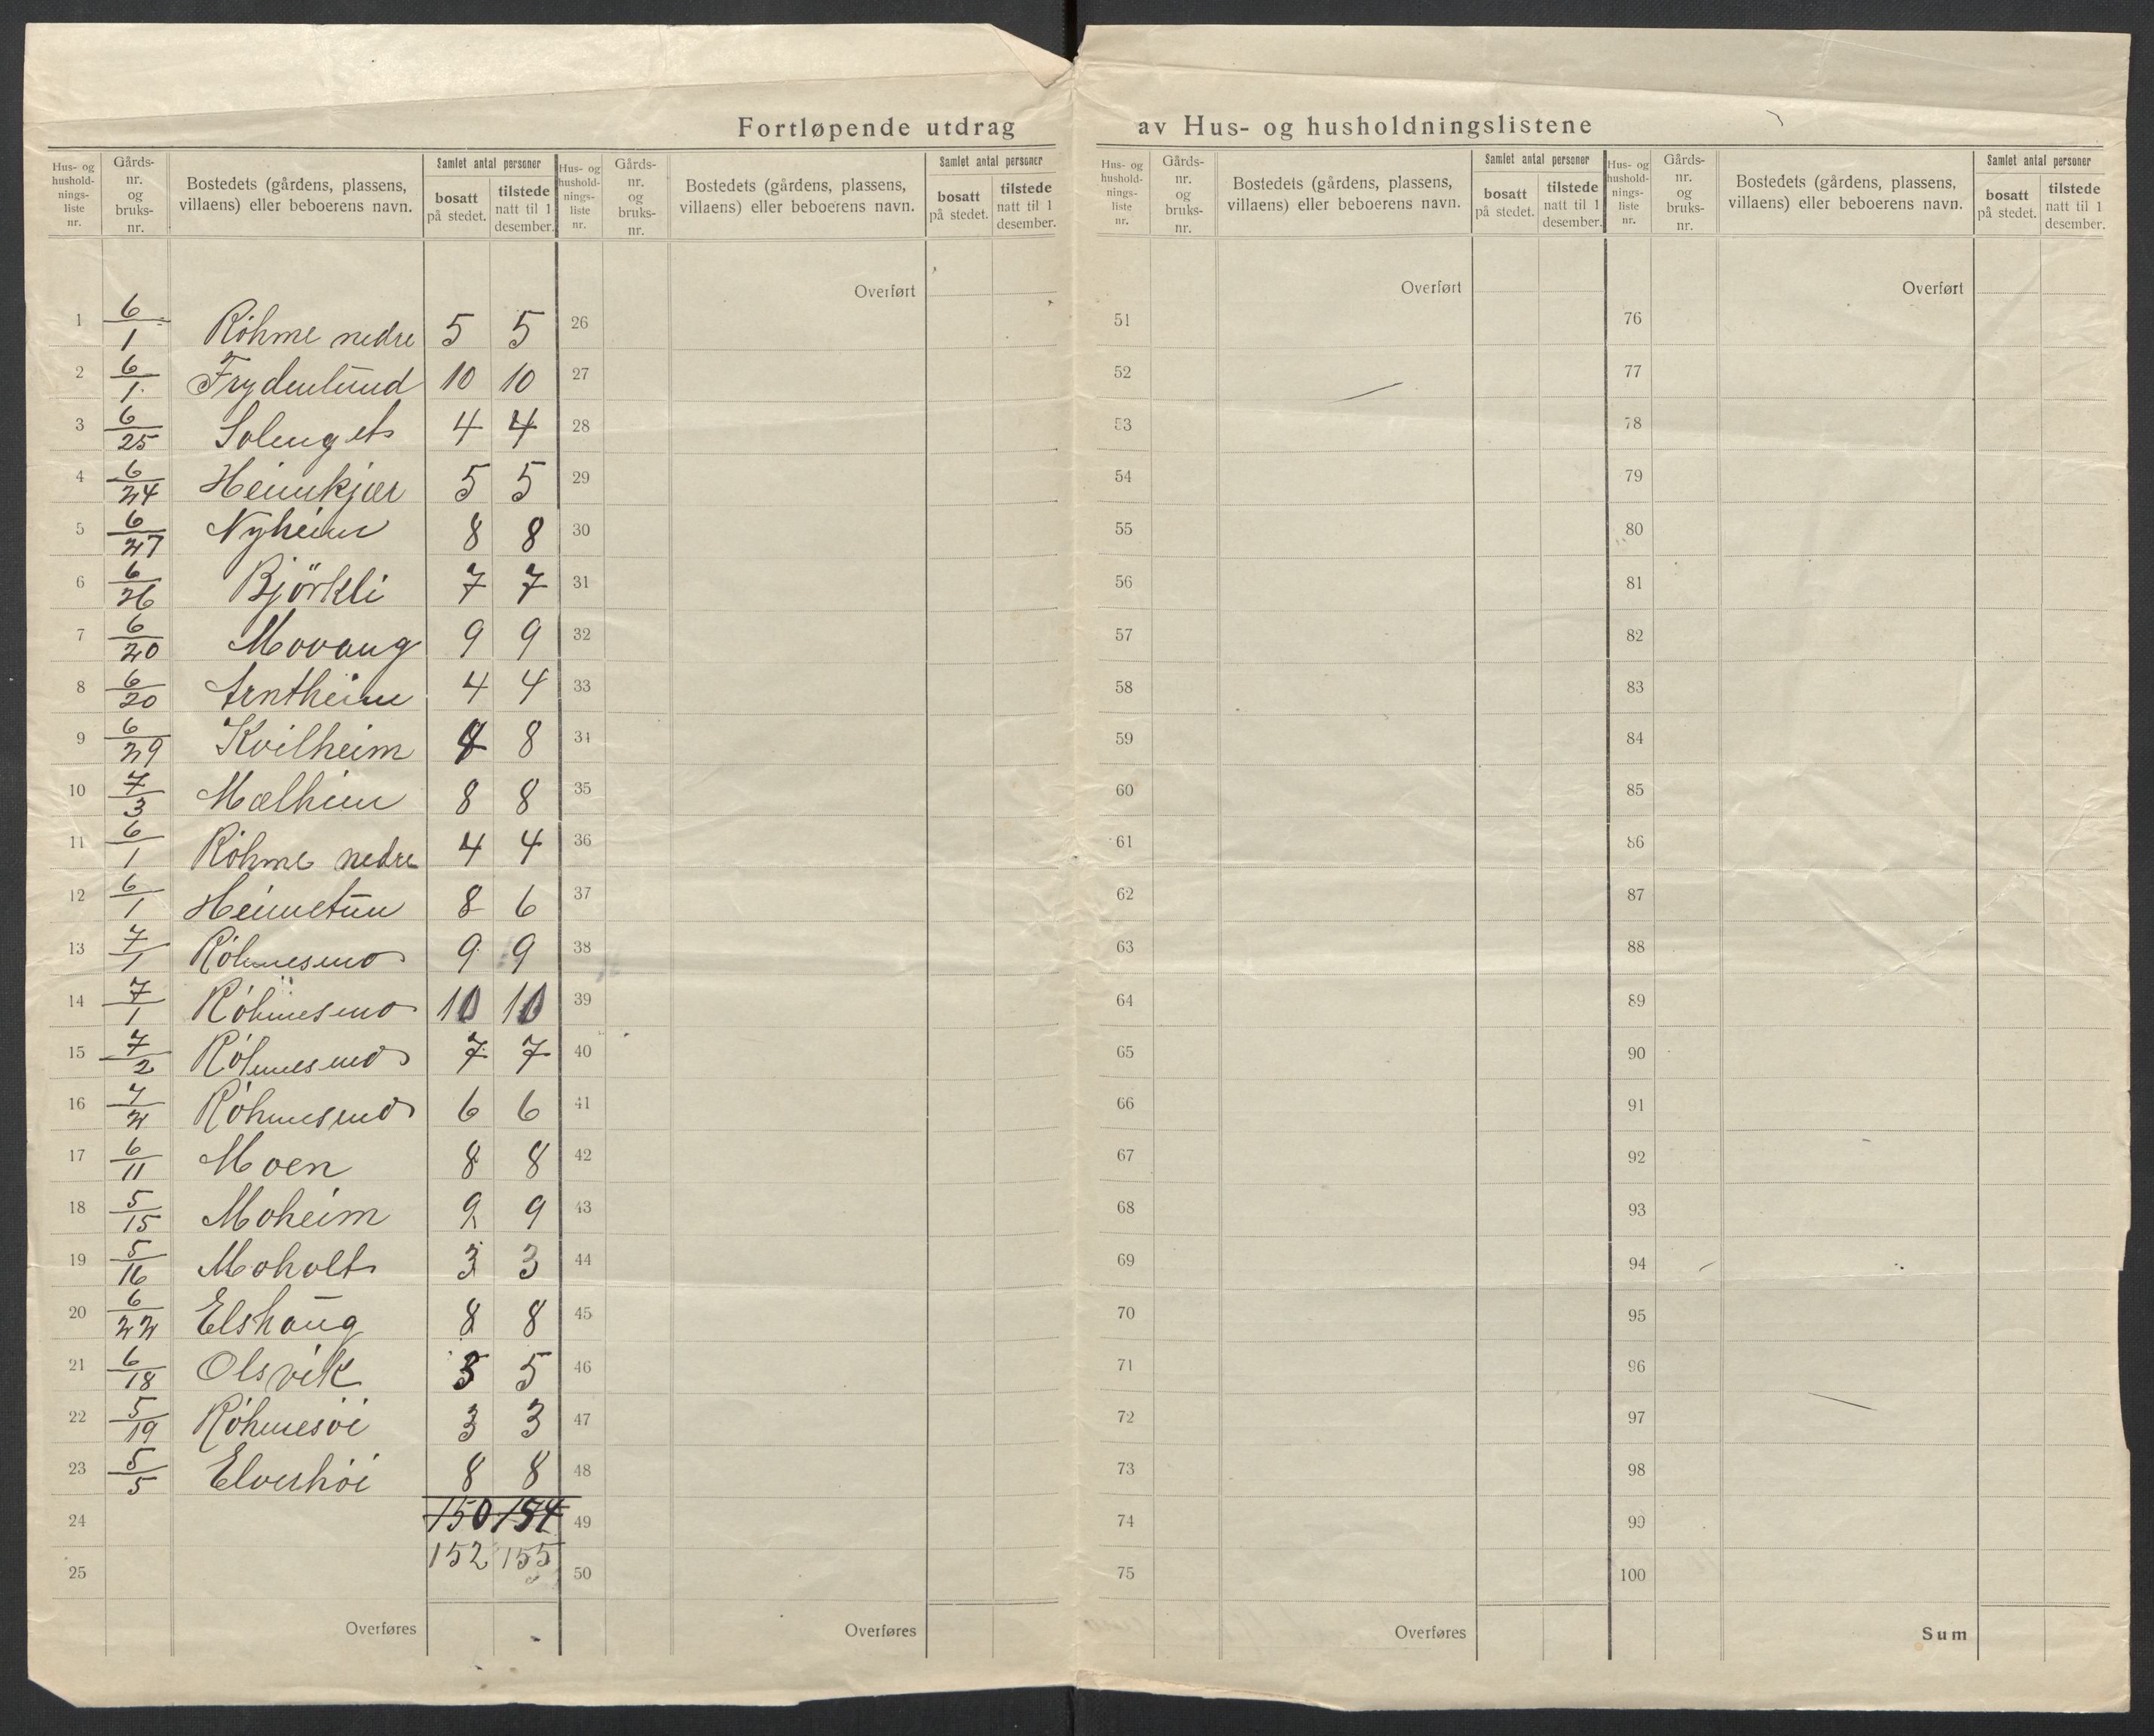 Fortløpende utdrag av Hus- og husholdningslistene
Hus- og hushold-nings-liste nr. | Gårds-nr. og bruks-nr. | Bostedets (gårdens, plassens, villaens) eller beboerens navn. | Samlet antal personer | bosatt på stedet. | tilstede natt til 1 desember.
Hus- og hushold-nings-liste nr. | Gårds-nr. og bruks-nr. | Bostedets (gårdens, plassens, villaens) eller beboerens navn. | Samlet antal personer | bosatt på stedet. | tilstede natt til 1 desember.
Hus- og hushold-nings-liste nr. | Gårds-nr. og bruks-nr. | Bostedets (gårdens, plassens, villaens) eller beboerens navn. | Samlet antal personer | bosatt på stedet. | tilstede natt til 1 desember.
Hus- og hushold-nings-liste nr. | Gårds-nr. og bruks-nr. | Bostedets (gårdens, plassens, villaens) eller beboerens navn. | Samlet antal personer | bosatt på stedet. | tilstede natt til 1 desember.
Overført Overført Overført
1 6/1 Röhme nedre 5 5 26 51 76
2 6/1 Frydenlund 10 10 27 52 77
3 6/25 Solenget 4 4 28 53 78
4 6/24 Heimkjær 5 5 29 54 79
5 6/27 Nyheim 8 8 30 55 80
6 6/26 Björkli 7 7 31 56 81
7 6/20 Movang 9 9 32 57 82
8 6/20 Arntheim 4 4 33 58 83
9 6/29 Kvilheim 8 34 59 84
10 7/3 Mælheim 8 8 35 60 85
11 6/1 Röhme nedre 4 4 36 61 86
12 6/1 Heimetun 8 6 37 62 87
13 7/1 Röhmesmo 9 9 38 63 88
14 7/1 Röhmesmo 10 10 39 64 89
15 7/2 Röhmesmo 7 7 40 65 90
16 7/2 Röhmesmo 6 6 41 66 91
17 6/11 Moen 8 8 42 67 92
18 5/15 Moheim 9 9 43 68 93
19 5/16 Moholt 3 3 44 69 94
20 6/22 Elshaug 8 8 45 70 95
21 6/18 Olsvik 5 46 71 96
22 5/19 Röhmesöi 3 3 47 72 97
23 5/5 Elverhöi 8 8 48 73 98
24 150 154 49 74 99
152 155
25 50 75 100
Overføres Overføres Overføres Sum